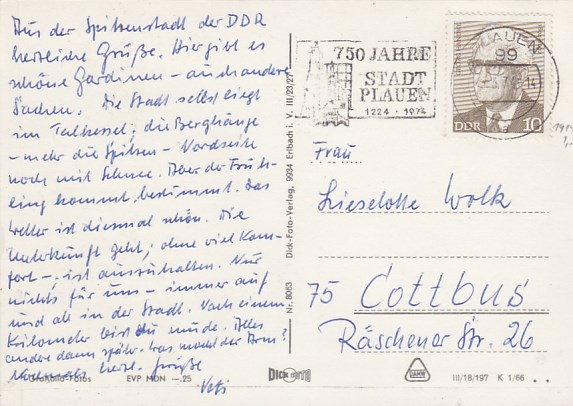 Aus der Spitzenstadt der DDR
herzliche Grüße. Hier gibt es
schöne Gardinen – auch andere
Sachen. Die Stadt selbst liegt
im Talkessel; die Berghänge
– mehr die Spitzen – Nordseite
noch mit Schnee. Aber der Früh-
ling kommt bestimmt. Das
Wetter ist diesmal schön. Die
Unterkunft geht; ohne viel Kom-
fort – ist auszuhalten. Nur
nichts für uns – immer auf
und ab in der Stadt. Nach einem
Kilometer bist du müde. Alles
andere dann später. Was macht der
Nochmals herzl. Grüße
Großbild-Fotos EVP MDN –.25
Nr. 8063 Dick-Foto-Verlag, 9934 Erlbach i. V. III/23/27
750 JAHRE
STADT
PLAUEN
1224 · 1974
PLAUEN
99
DDR 10
Frau
Lieselotte Wolk
75 Cottbus
Räschener Str. 26
DICK FOTO
III/18/197 K 1/66